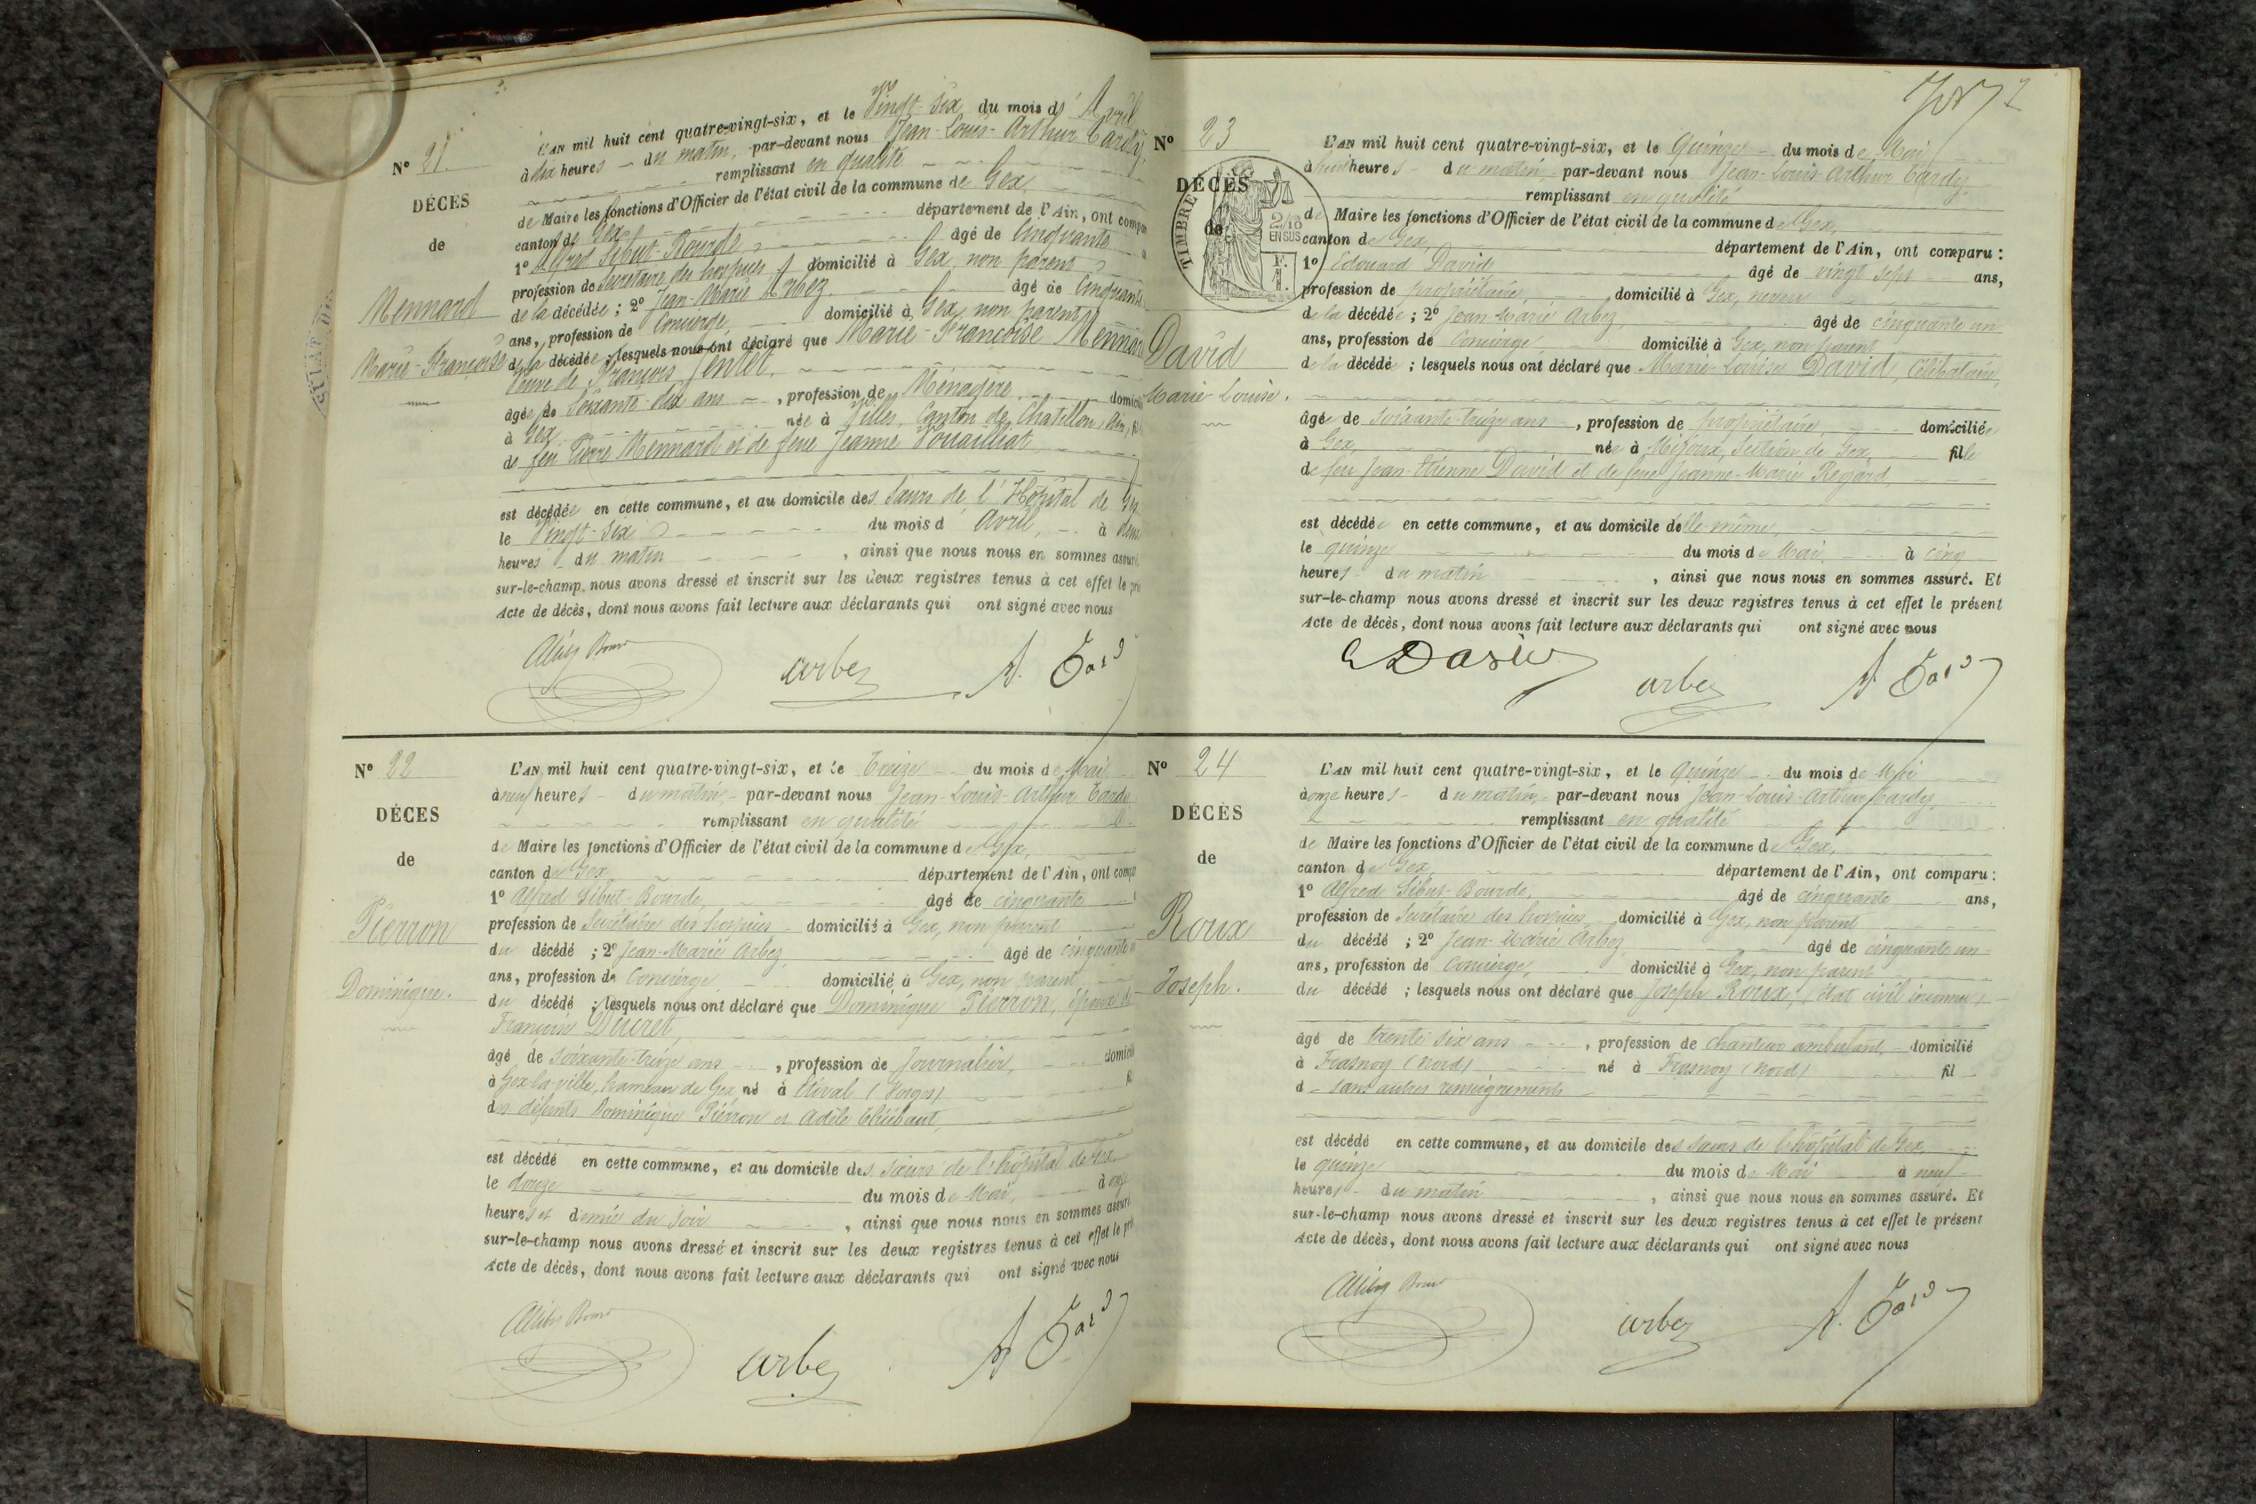 Nº 21.
DÉCES
de
Mennard
Marie-Françoise
L'AN mil huit cent quatre-vingt-six, et le Vingt-six du mois d' Avril
à dix heures du matin, par-devant nous Jean-Louis-Arthur Tardy,
remplissant en qualité
de Maire les fonctions d'Officier de l'état civil de la commune de Gex
canton de Gex département de l'Ain, ont compar
1º Alfred Sibut-Bourde, âgé de Cinquante
profession de Secrétaire des hospices, domicilié à Gex, non parent
de la décédée ; 2º Jean-Marie Arbez âgé de Cinquante
ans, profession de Concierge, domicilié à Gex, non parent
de la décédée ; lesquels nous ont déclaré que Marie-Françoise Mennard
Veuve de François Jentet,
âgée de Soixante-dix ans , profession de Ménagère domicili
à Gex née à Villes, Canton de Chatillon, Ain, fi
de feu Pierre Mennard et de feue Jeanne
est décédée en cette commune, et au domicile des Sœurs de l'Hôpital de Gex
le Vingt-six du mois d' Avril, à
heures du matin , ainsi que nous nous en sommes assuré
sur-le-champ nous avons dressé et inscrit sur les deux registres tenus à cet effet le pré
Acte de décès, dont nous avons fait lecture aux déclarants qui ont signé avec nous
Arbez A. Tardy
Nº 22
DÉCES
de
Pierron
Dominique.
L'AN mil huit cent quatre-vingt-six, et le Treize du mois de Mai
à neuf heures du matin, par-devant nous Jean-Louis-Arthur Tardy
remplissant en qualité
de Maire les fonctions d'Officier de l'état civil de la commune de Gex,
canton de Gex département de l'Ain, ont compa
1º Alfred Sibut-Bourde, âgé de cinquante
profession de Secrétaire des hospices domicilié à Gex, non parent
du décédé ; 2º Jean-Marie Arbez âgé de cinquante
ans, profession de Concierge domicilié à Gex, non parent
du décédé ; lesquels nous ont déclaré que Dominique Pierron, époux de
Françoise Ducret,
âgé de soixante-treize ans , profession de Journalier, domicili
à Gex-la-ville, hameau de Gex, né à Etival (Vosges) fi
des défunts Dominique Pierron et Adèle Thiébaut,
est décédé en cette commune, et au domicile des sœurs de l'hôpital de Gex
le douze du mois de Mai, à onze
heures et demie du soir , ainsi que nous nous en sommes assuré
sur-le-champ nous avons dressé et inscrit sur les deux registres tenus à cet effet le pré
Acte de décès, dont nous avons fait lecture aux déclarants qui ont signé avec nous
Arbez A. Tardy
Nº 23
DÉCÈS
de
TIMBRE
2/10
EN SUS
David
Marie Louise.
L'AN mil huit cent quatre-vingt-six, et le Quinze du mois de Mai
à huit heures du matin, par-devant nous Jean-Louis-Arthur Tardy
remplissant en qualité
de Maire les fonctions d'Officier de l'état civil de la commune de Gex,
canton de Gex, département de l'Ain, ont comparu :
1º Edouard David âgé de vingt sept ans,
profession de propriétaire, domicilié à Gex, neveu
de la décédée ; 2º Jean-Marie Arbez, âgé de cinquante un
ans, profession de Concierge domicilié à Gex, non parent
de la décédée ; lesquels nous ont déclaré que Marie-Louise David, Célibataire,
âgée de soixante-treize ans , profession de propriétaire, domiciliée
à Gex, née à Mijoux, section de Gex, fille
de feu Jean-Etienne David et de feue Jeanne-Marie Regard
est décédée en cette commune, et au domicile d'elle-même,
le quinze du mois de Mai à cinq
heures du matin , ainsi que nous nous en sommes assuré. Et
sur-le-champ nous avons dressé et inscrit sur les deux registres tenus à cet effet le présent
Acte de décès, dont nous avons fait lecture aux déclarants qui ont signé avec nous
E David Arbez A. Tardy
Nº 24
DÉCÈS
de
Roux
Joseph.
L'AN mil huit cent quatre-vingt-six, et le Quinze du mois de Mai
à onze heures du matin, par-devant nous Jean-Louis-Arthur Tardy,
remplissant en qualité
de Maire les fonctions d'Officier de l'état civil de la commune de Gex,
canton de Gex, département de l'Ain, ont comparu :
1º Alfred Sibut-Bourde, âgé de cinquante ans,
profession de Secrétaire des hospices domicilié à Gex, non parent
du décédé ; 2º Jean-Marie Arbez, âgé de cinquante un
ans, profession de Concierge, domicilié à Gex, non parent
du décédé ; lesquels nous ont déclaré que Joseph Roux, (état civil inconnu)
âgé de trente six ans , profession de chanteur ambulant, domicilié
à Frasnoy (Nord) né à Frasnoy (Nord) fil
d sans autres renseignements
est décédé en cette commune, et au domicile des sœurs de l'hôpital de Gex
le quinze du mois de Mai à neuf
heures du matin , ainsi que nous nous en sommes assuré. Et
sur-le-champ nous avons dressé et inscrit sur les deux registres tenus à cet effet le présent
Acte de décès, dont nous avons fait lecture aux déclarants qui ont signé avec nous
Arbez A. Tardy